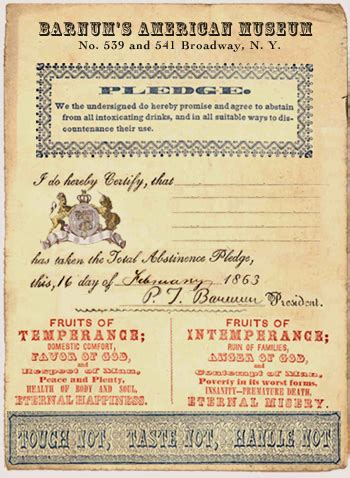 BARNUM'S AMERICAN MUSEUM
No. 539 and 541 Broadway, N. Y.
PLEDGE.
We the undersigned do hereby promise and agree to abstain
from all intoxicating drinks, and in all suitable ways to dis-
countenance their use.
I do hereby Certify, that
has taken the Total Abstinence Pledge,
this, 16 day of February 1863
P. T. Barnum President.
FRUITS OF
TEMPERANCE;
DOMESTIC COMFORT,
FAVOR OF GOD,
and
Respect of Man,
Peace and Plenty,
HEALTH OF BODY AND SOUL,
ETERNAL HAPPINESS.
FRUITS OF
INTEMPHRANCE;
RUIN OF FAMILIES,
ANGER OF GOD,
and
Contempt of Man,
Poverty in its worst forms,
INSANITY–PREMATURE DEATH,
ETERNAL MISERY.
TOUCH NOT, TASTE NOT, HANDLE NOT